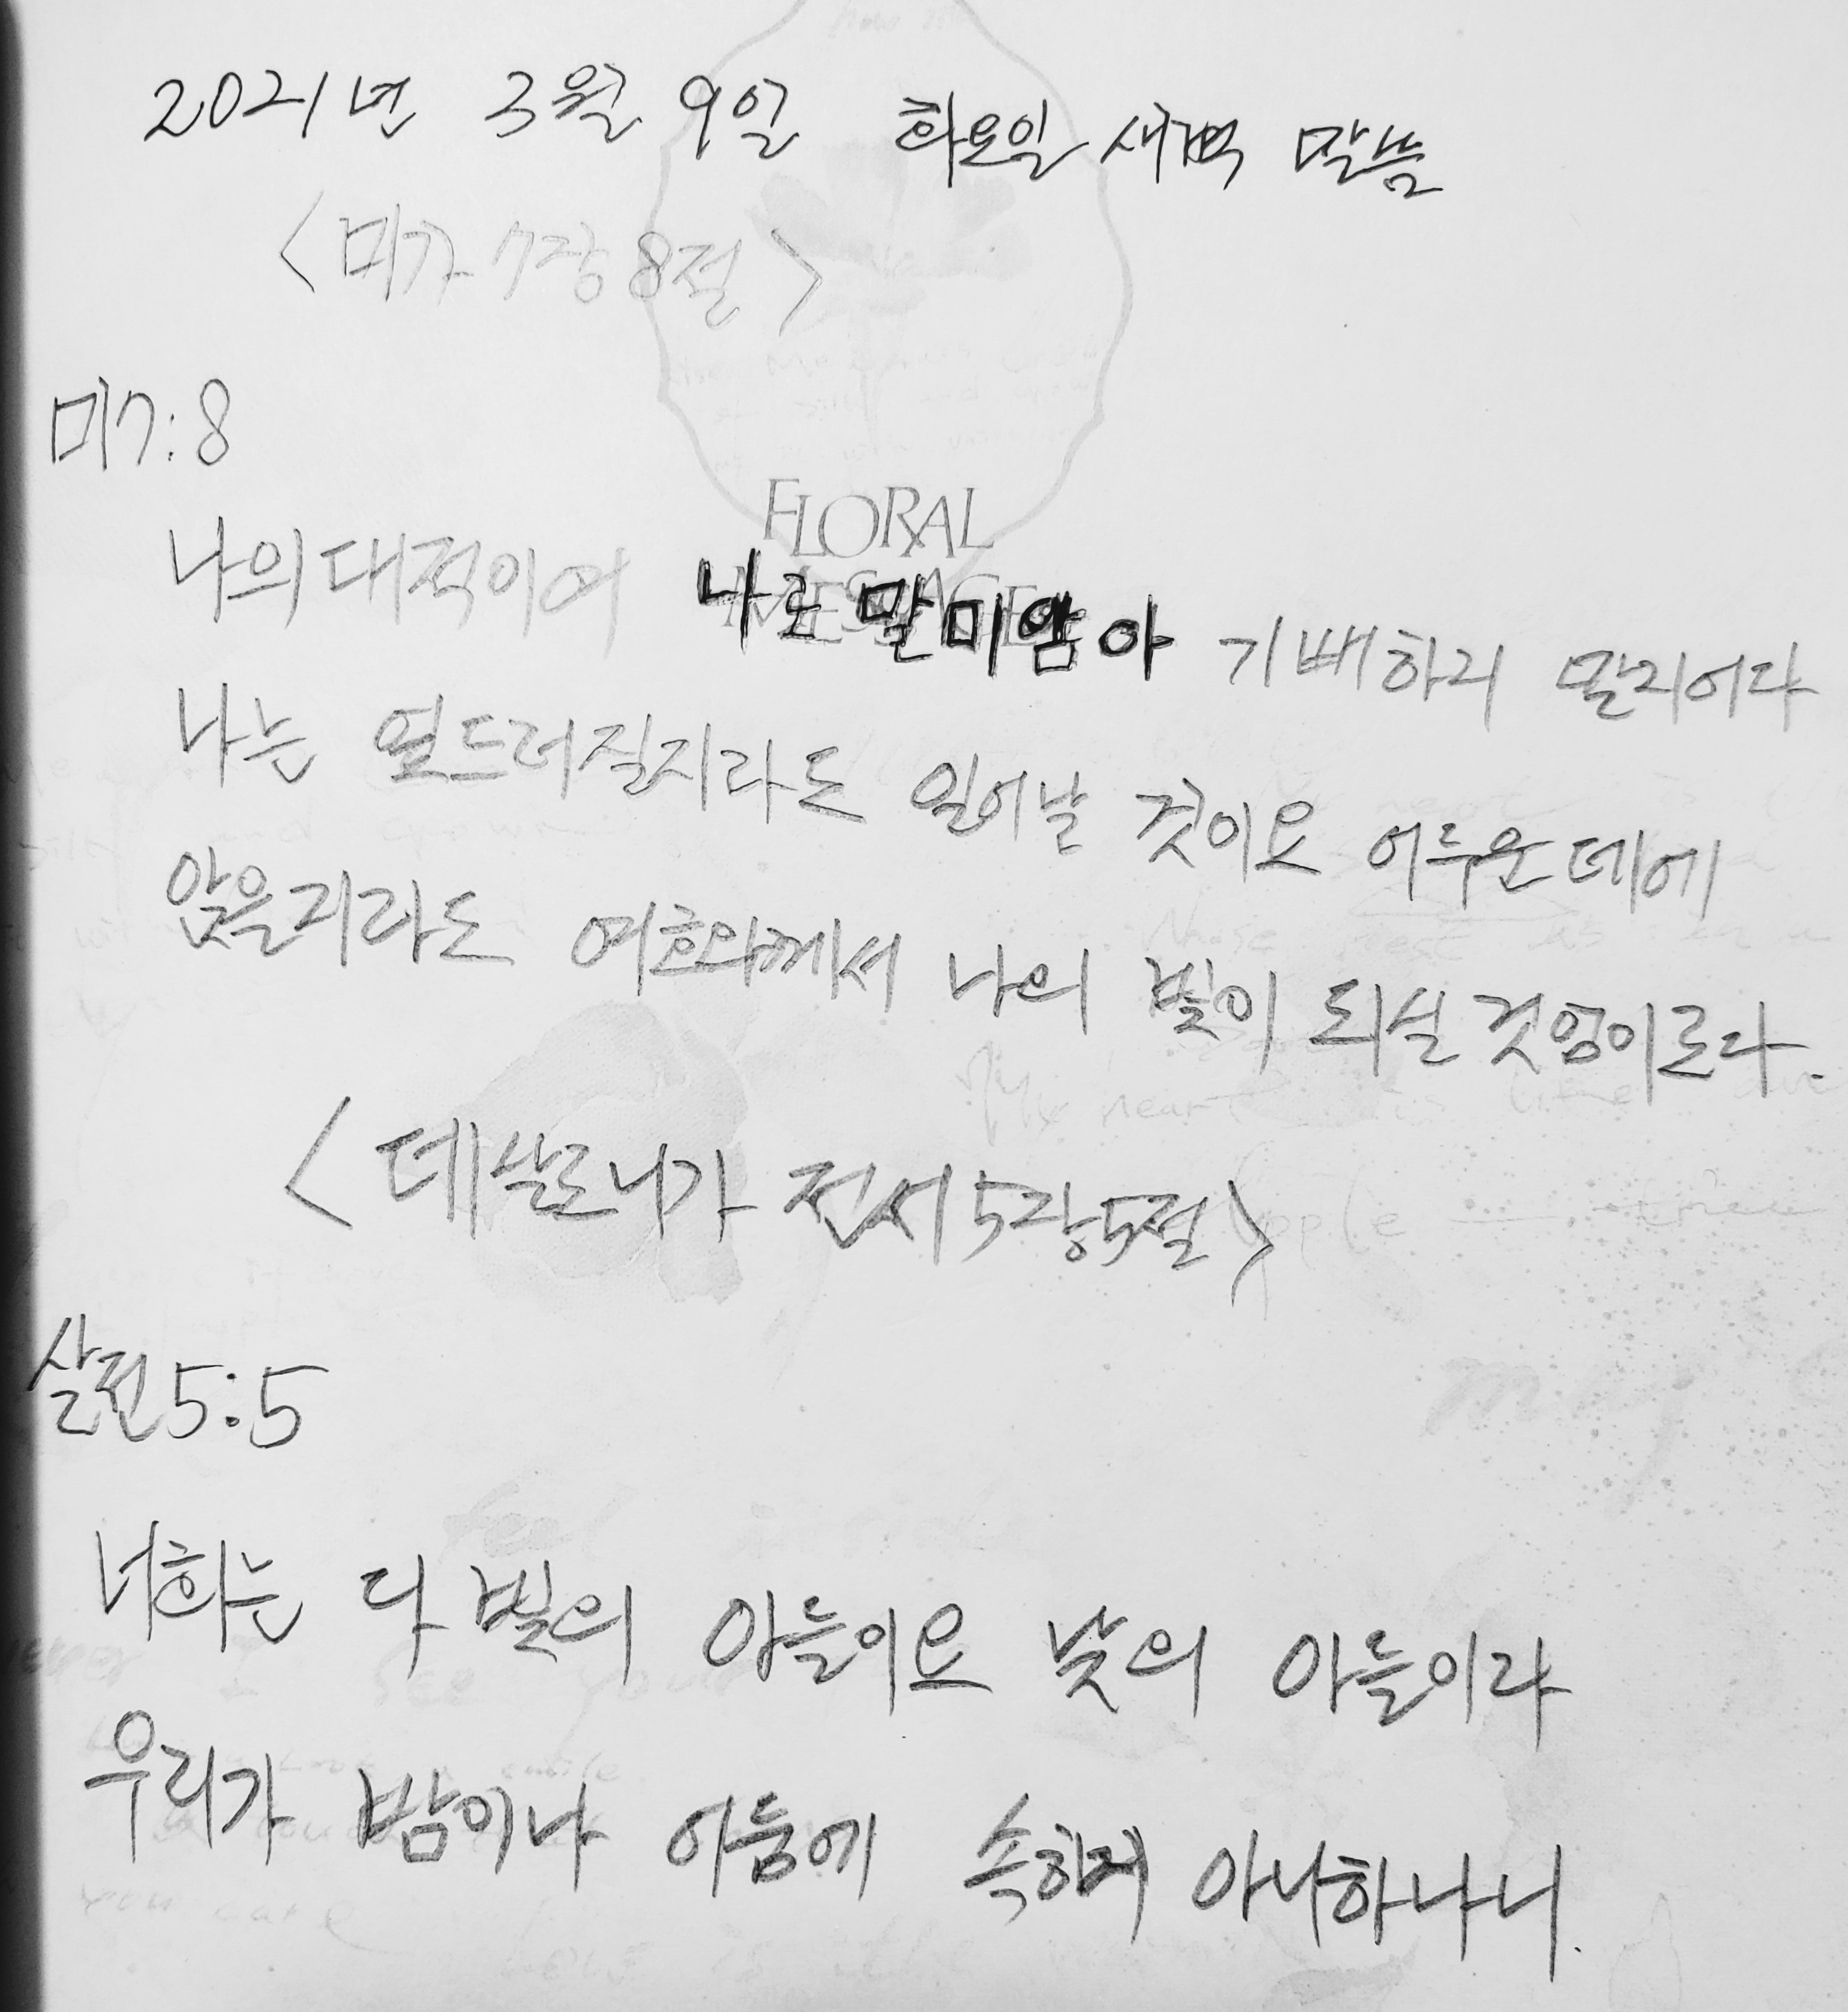 2021년 3월 9일 화요일 새벽 말씀
<미가 7장 8절>
미7:8
FLORAL
MESSAGE
나의 대적이여 나로 말미암아 기뻐하지 말지어다
나는 엎드러질지라도 일어날 것이요 어두운 데에
앉을지라도 여호와께서 나의 빛이 되실 것임이로다.
<데살로니가 전서 5장 5절>
살전 5:5
너희는 다 빛의 아들이요 낮의 아들이라
우리가 밤이나 어둠에 속하지 아니하나니.